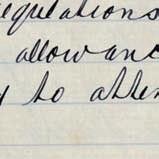 regulations
allowanc
to atten